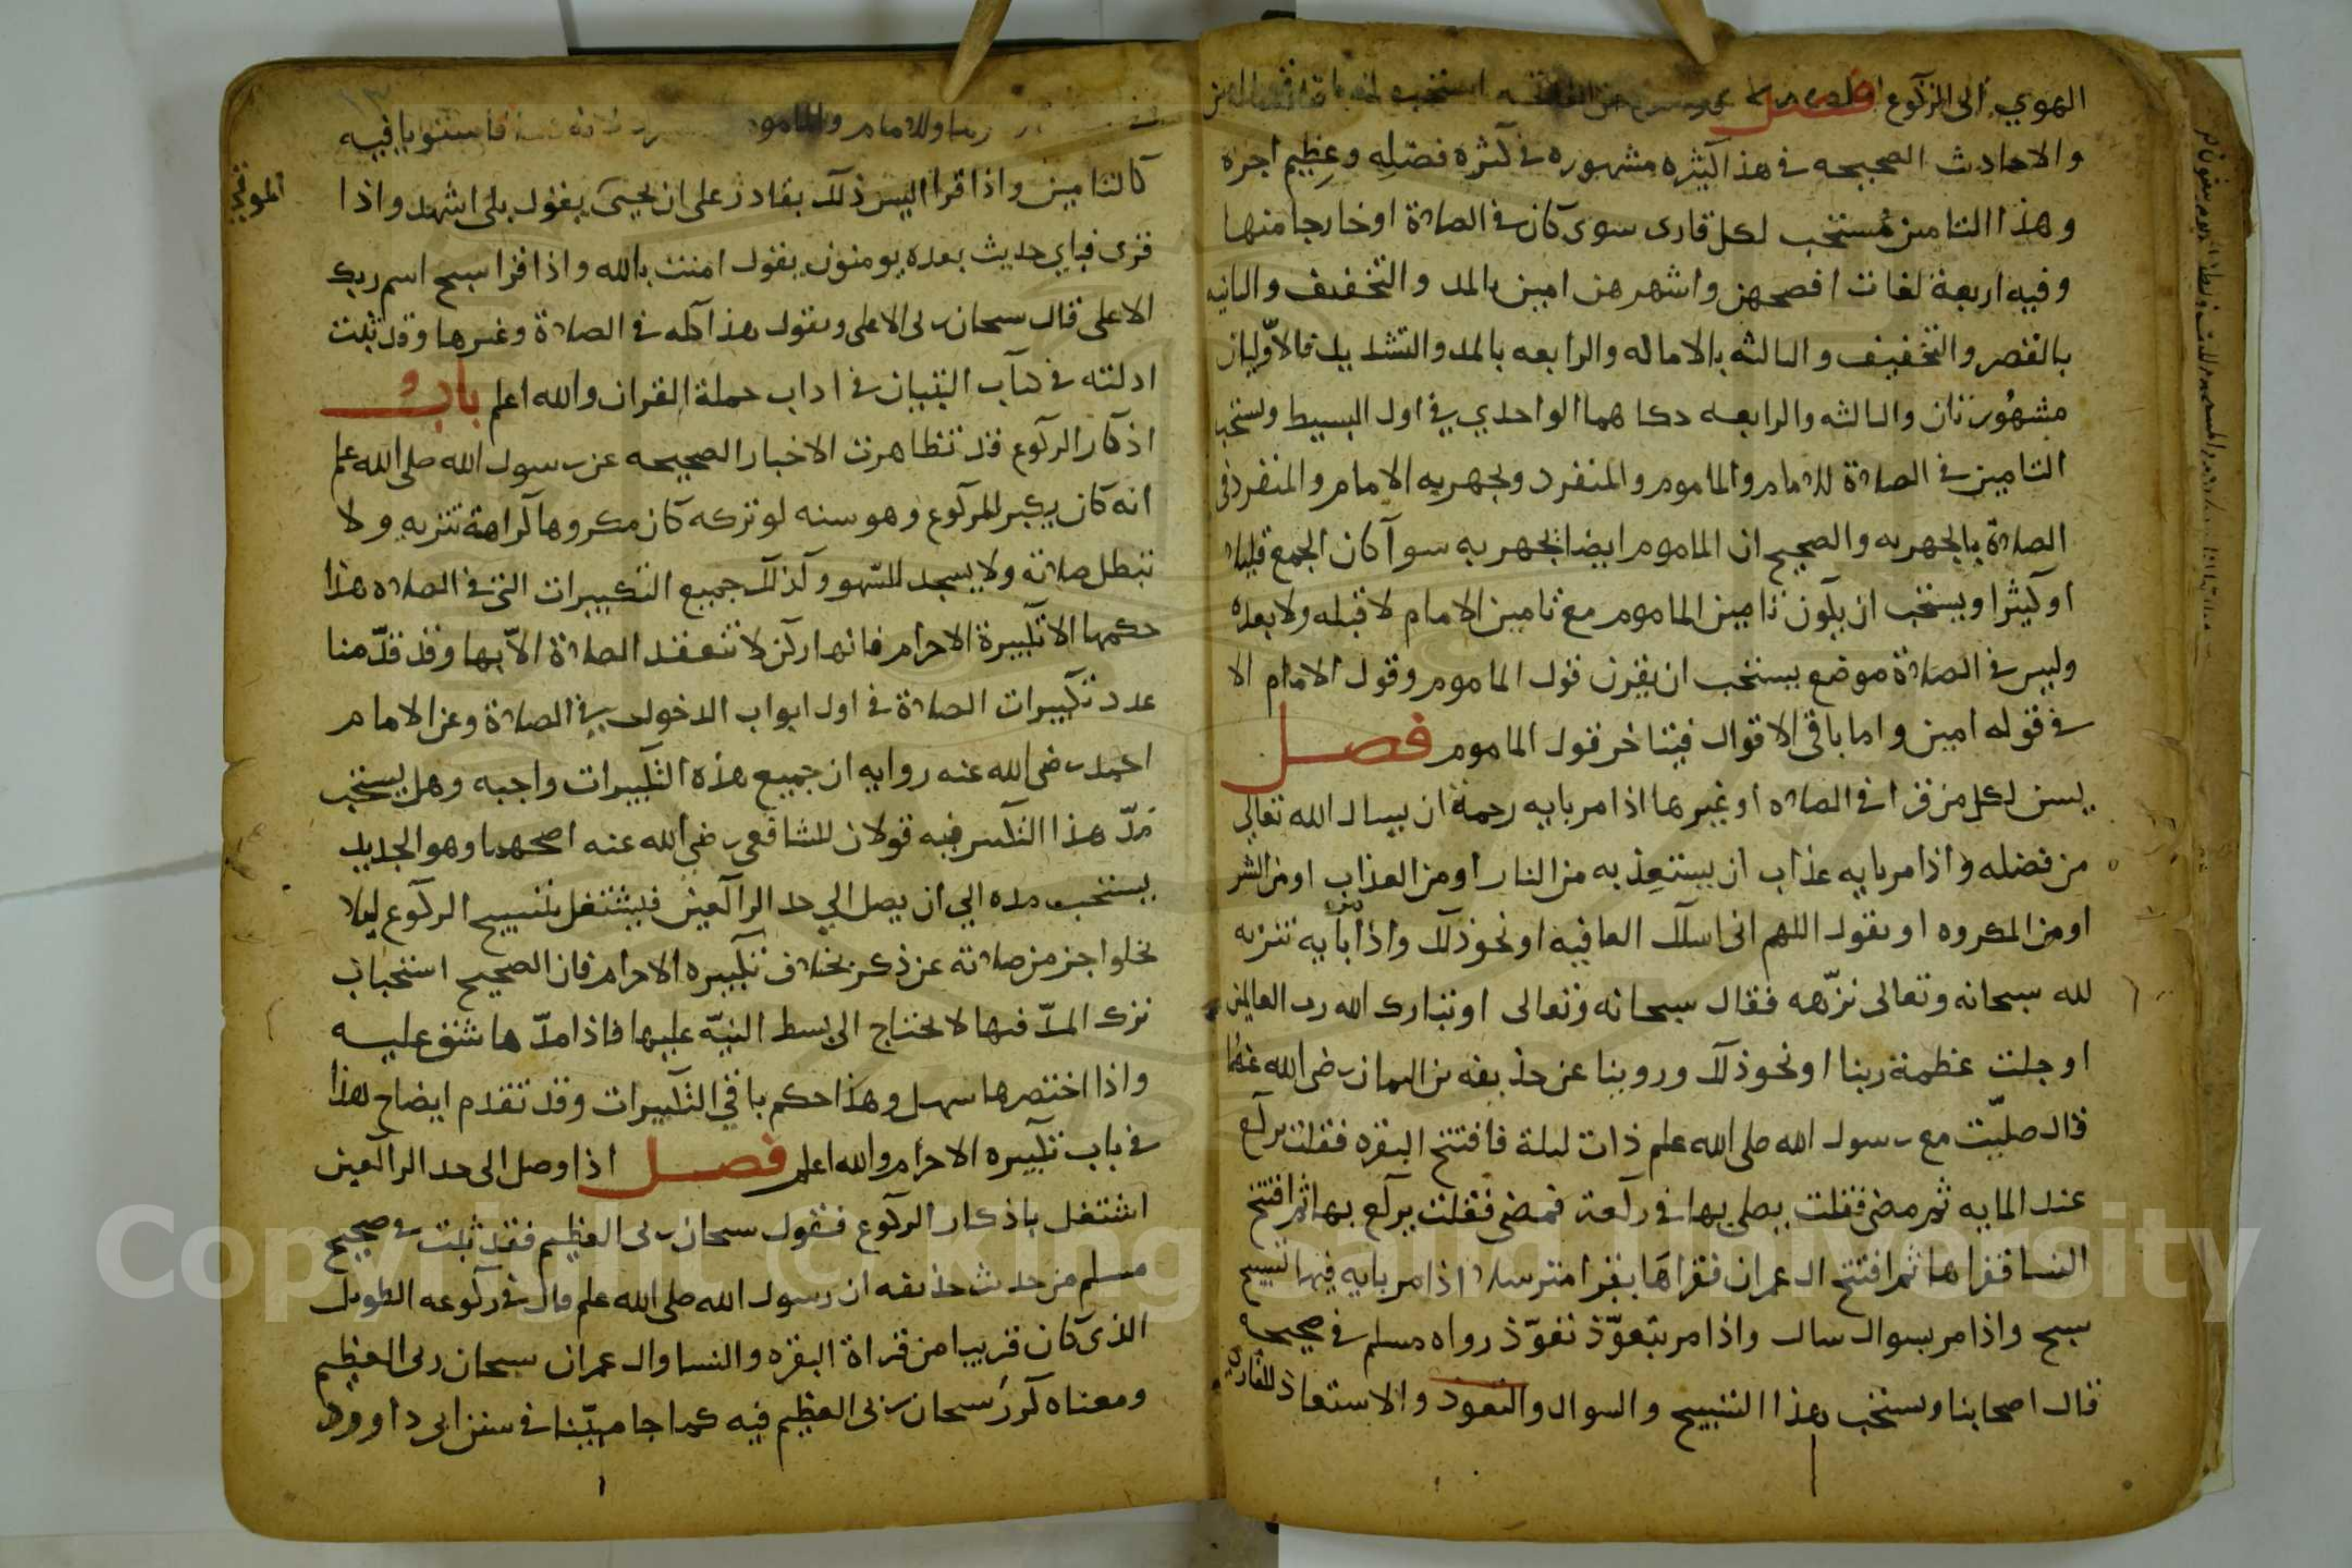 الهوي الى الركوع فصل
والاحاديث الصحيحه في هذا كثيره مشهوره في كثره فضله وعظيم اجره
وهذا التامين مستحب لكل قارى سوى كان في الصلاة او خارجا منها
وفيه اربعة لغات افصحهن واشهرهن امين بالمد والتخفيف والثانيه
بالقصر والتخفيف والثالثه بالاماله والرابعه بالمد والتشديد فالاوّليان
مشهُورتان والثالثه والرابعه حكاهما الواحدي في اول البسيط ويستحب
التامين في الصلاة للامام والماموم والمنفرد ويجهر به الامام والمنفرد في
الصلاة بالجهريه والصحيح ان الماموم ايضا يجهر به سوآ كان الجمع قليلا
او كثيرا ويستحب ان يكون تامين الماموم مع تامين الامام لا قبله ولا بعده
وليس في الصلاة موضع يستحب ان يقرن قول الماموم وقول الامام الا
في قوله امين واما باقي الاقوال فيتاخر قول الماموم فصل
يسن لكل من قرا في الصلاه او غيرها اذا مر بايه رحمة ان يسال الله تعالى
من فضله واذا مر بايه عذاب ان يستعِذ به من النار او من العذاب او من الشر
او من المكروه او يقول اللهم انى اسلك العافيه او نحو ذلك واذا مر بأيه تنزيه
لله سبحانه وتعالى نزّهه فقال سبحانه وتعالى او تبارك الله رب العالمين
او جلت عظمة ربنا او نحو ذلك وروينا عن حذيفه بن اليمان رضى الله عنهما
قال صليّت مع رسول الله صلى الله علم ذات ليلة فافتتح البقره فقلت يركع
عند المايه ثم مضى فقلت يصلى بها في ركعة فمضى فقلت يركع بها ثم افتتح
النسا فقراها ثم افتتح ال عمران فقراهَا يقرا مترسلا اذا مر بايه فيها تسبيح
سبح واذا مر بسوال سال واذا مر بتعوّذ تعوّذ رواه مسلم في صحيحه
قال اصحابنا ويستحب هذا التسبيح والسوال والتعوذ والاستعاذ للقارى
والامام والماموم فاستووا فيه
كالتامين واذا قرا اليس ذلك بقادر على ان يحيى يقول بلى اشهد واذا
قرى فباي حديث بعده يومنون يقول امنت بالله واذا قرا سبح اسم ربك
الاعلى قال سبحان ربى الاعلى ويقول هذا كله في الصلاة وغيرها وقد ثبت
ادلته في كتاب التبيان في اداب حملة القران والله اعلم باب
اذكار الركوع قد تظاهرت الاخبار الصحيحه عن رسول الله صلى الله علم
انه كان يكبر للركوع وهو سنه لو تركه كان مكروها كراهة تنزيه ولا
تبطل صلاته ولا يسجد للسهو وكذلك جميع التكبيرات التى في الصلاه هذا
حكمها الا تكبيرة الاحرام فانها ركن لا تنعقد الصلاة الاّ بها وقد قدّمنا
عدد تكبيرات الصلاة في اول ابواب الدخول في الصلاة وعن الامام
احمد رضي الله عنه روايه ان جميع هذه التكبيرات واجبه وهل يستحب
مدّ هذا التكبير فيه قولان للشافعي رضي الله عنه اصحهما وهو الجديد
يستحب مده الى ان يصل الى حد الراكعين فيشتغل بتسبيح الركوع ليلا
يخلوا جز من صلاته عن ذكر بخلاف تكبيره الاحرام فان الصحيح استحباب
ترك المدّ فيها لا يحتاج الى بسط النيّه عليها فاذا مدّها شق عليه
واذا اختصرها سهل وهذا حكم باقي التكبيرات وقد تقدم ايضاح لهذا
في باب تكبيره الاحرام والله اعلم فصل اذا وصل الى حد الراكعين
اشتغل باذكار الركوع فيقول سبحان ربى العظيم فقد ثبت في صحيح
مسلم من حديث حذيفه ان رسول الله صلى الله علم قال في ركوعه الطويل
الذى كان قريبا من قراة البقره والنسا وال عمران سبحان ربى العظيم
ومعناه كرر سبحان ربى العظيم فيه كما جا مبيّنا في سنن ابى داوود
Copyright © King Saud University